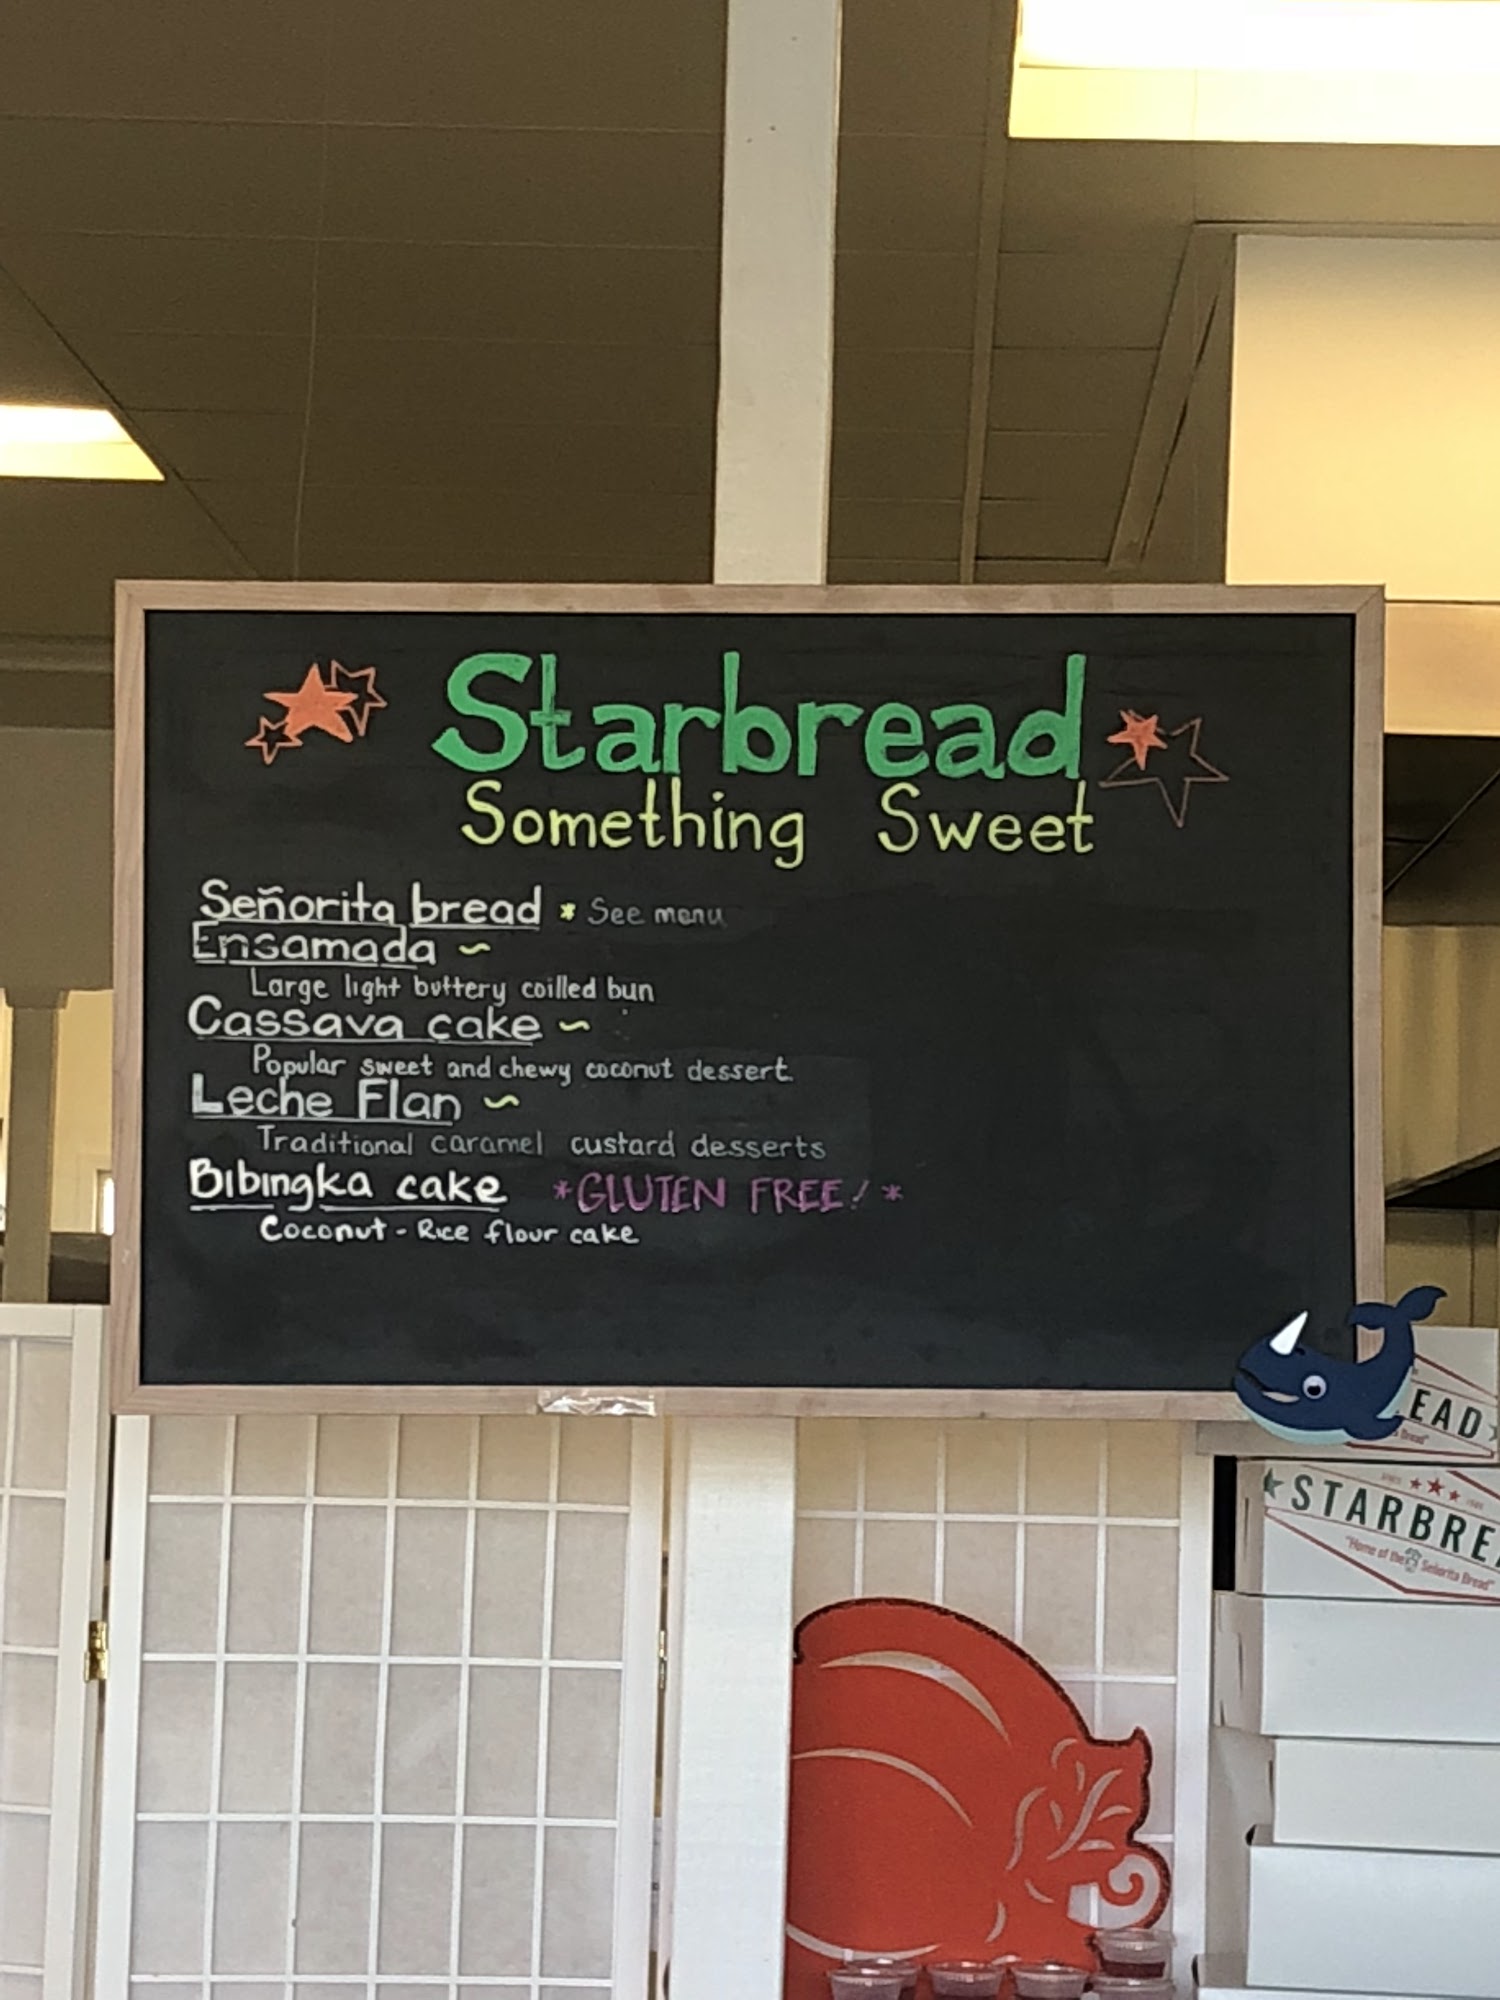 Starbread
Something Sweet
Señorita bread * See menu
Ensamada ~
Large light buttery coilled bun
Cassava cake ~
Popular sweet and chewy coconut dessert.
Leche Flan ~
Traditional caramel custard desserts
Bibingka cake *GLUTEN FREE! *
Coconut - Rice flour cake
EAD
Bread"
STARBRE
"Home of the Señorita Bread"